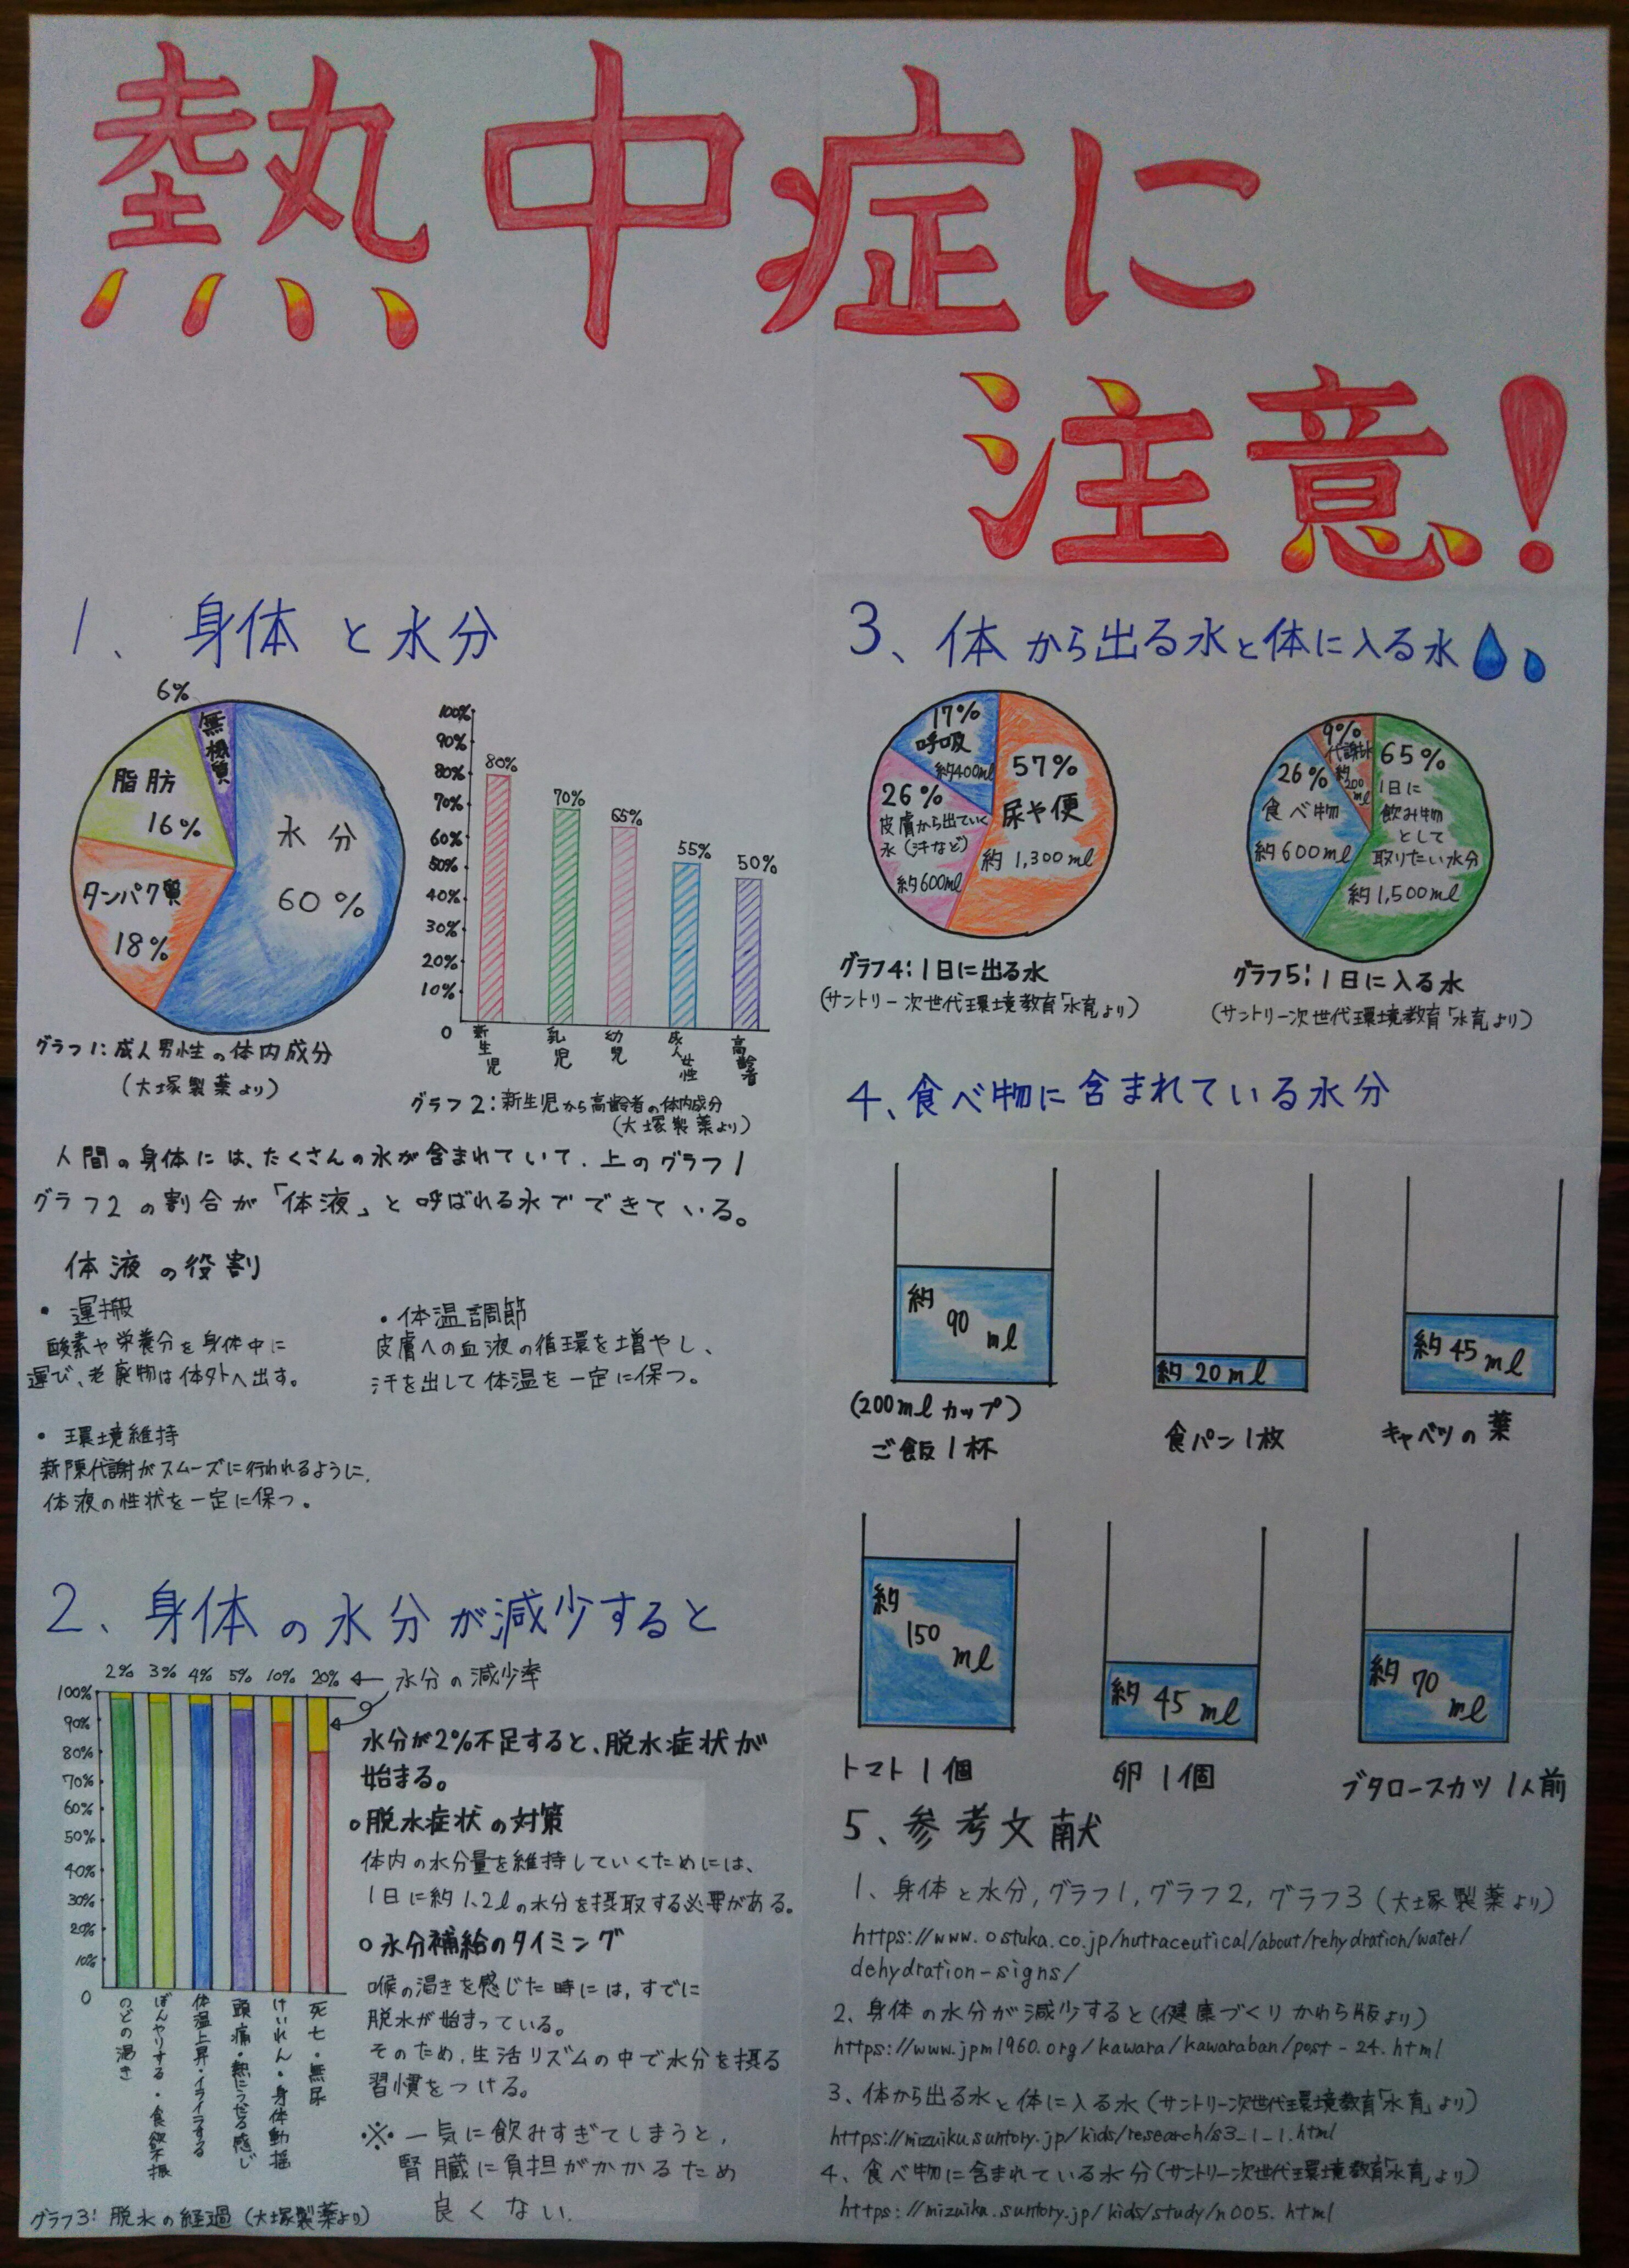 熱中症に
注意!
1、身体と水分
6%
無機質
脂肪
16%
水分
60%
タンパク質
18%
グラフ1:成人男性の体内成分
(大塚製薬より)
100%
90%
80%
70%
60%
50%
40%
30%
20%
10%
0
80%
70%
65%
55%
50%
新生児
乳児
幼児
成人女性
高齢者
グラフ2:新生児から高齢者の体内成分
(大塚製薬より)
人間の身体には、たくさんの水が含まれていて、上のグラフ1
グラフ2の割合が「体液」と呼ばれる水でできている。
体液の役割
・運搬
酸素や栄養分を身体中に
運び、老廃物は体外へ出す。
・体温調節
皮膚への血液の循環を増やし、
汗を出して体温を一定に保つ。
・環境維持
新陳代謝がスムーズに行われるように、
体液の性状を一定に保つ。
2、身体の水分が減少すると
2% 3% 4% 5% 10% 20% ← 水分の減少率
100%
90%
80%
70%
60%
50%
40%
30%
20%
10%
0
のどの渇き
ぼんやりする・食欲不振
体温上昇・イライラする
頭痛・熱にうだる感じ
けいれん・身体動揺
死亡・無尿
グラフ3:脱水の経過(大塚製薬より)
水分が2%不足すると、脱水症状が
始まる。
○脱水症状の対策
体内の水分量を維持していくためには、
1日に約1.2lの水分を摂取する必要がある。
○水分補給のタイミング
喉の渇きを感じた時には、すでに
脱水が始まっている。
そのため、生活リズムの中で水分を摂る
習慣をつける。
※一気に飲みすぎてしまうと、
腎臓に負担がかかるため
良くない。
3、体から出る水と体に入る水
17%
呼吸
約400ml
57%
尿や便
約1,300ml
26%
皮膚から出ていく
水(汗など)
約600ml
グラフ4:1日に出る水
(サントリー次世代環境教育「水育」より)
9%
代謝水
約
200
ml
65%
1日に
飲み物
として
取りたい水分
約1,500ml
26%
食べ物
約600ml
グラフ5:1日に入る水
(サントリー次世代環境教育「水育」より)
4、食べ物に含まれている水分
約
90
ml
(200mlカップ)
ご飯1杯
約20ml
食パン1枚
約45ml
キャベツの葉
約
150
ml
トマト1個
約45ml
卵1個
約70
ml
ブタロースカツ1人前
5、参考文献
1、身体と水分,グラフ1,グラフ2,グラフ3(大塚製薬より)
https://www.ostuka.co.jp/nutraceutical/about/rehydration/water/
dehydration-signs/
2、身体の水分が減少すると(健康づくりかわら版より)
https://www.jpm1960.org/kawara/kawaraban/post-24.html
3、体から出る水と体に入る水(サントリー次世代環境教育「水育」より)
https://mizuiku.suntory.jp/kids/research/s3_1_1.html
4、食べ物に含まれている水分(サントリー次世代環境教育「水育」より)
https://mizuika.suntory.jp/kids/study/n005.html